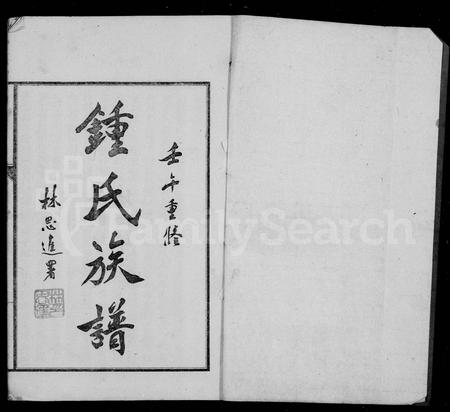 壬午重修
鍾氏族譜
林思進署
FamilySearch